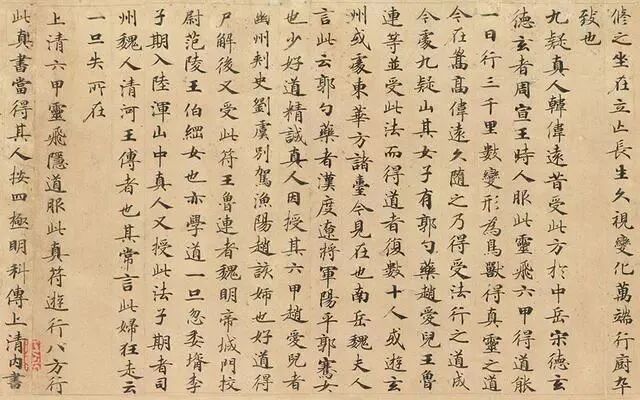 脩之坐在立亡長生久視變化萬端行廚卒
致也
九疑真人韓偉遠昔受此方於中岳宋德玄
德玄者周宣王時人服此靈飛六甲得道能
一日行三千里數變形為鳥獸得真靈之道
今在嵩高偉遠久隨之乃得受法行之道成
今處九疑山其女子有郭勺藥趙愛兒王魯
連等並受此法而得道者復數十人或遊玄
州或處東華方諸臺今見在也南岳魏夫人
言此云郭勺藥者漢度遼將軍陽平郭騫女
也少好道精誠真人因授其六甲趙愛兒者
幽州刺史劉虞別駕漁陽趙該姊也好道得
尸解後又受此符王魯連者魏明帝城門校
尉范陵王伯綱女也亦學道一旦忽委壻李
子期入陸渾山中真人又授此法子期者司
州魏人清河王傳者也其常言此婦狂走云
一旦失所在
上清六甲靈飛隱道服此真符遊行八方行
此真書當得其人按四極明科傳上清內書